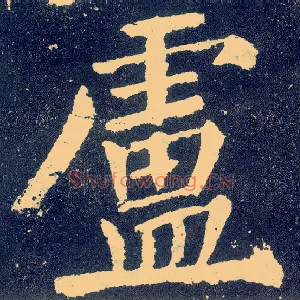 盧
Shufawang.CN